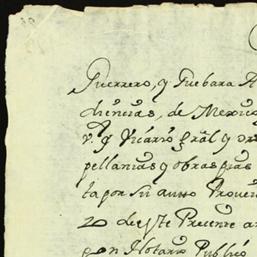 Guerrero, y Guebara A
diencias, de Mexico
y Vicario Gral y or
pellanias y obras pias
ta por su auto Proueí
20 de este Precente a
con Notario Publico